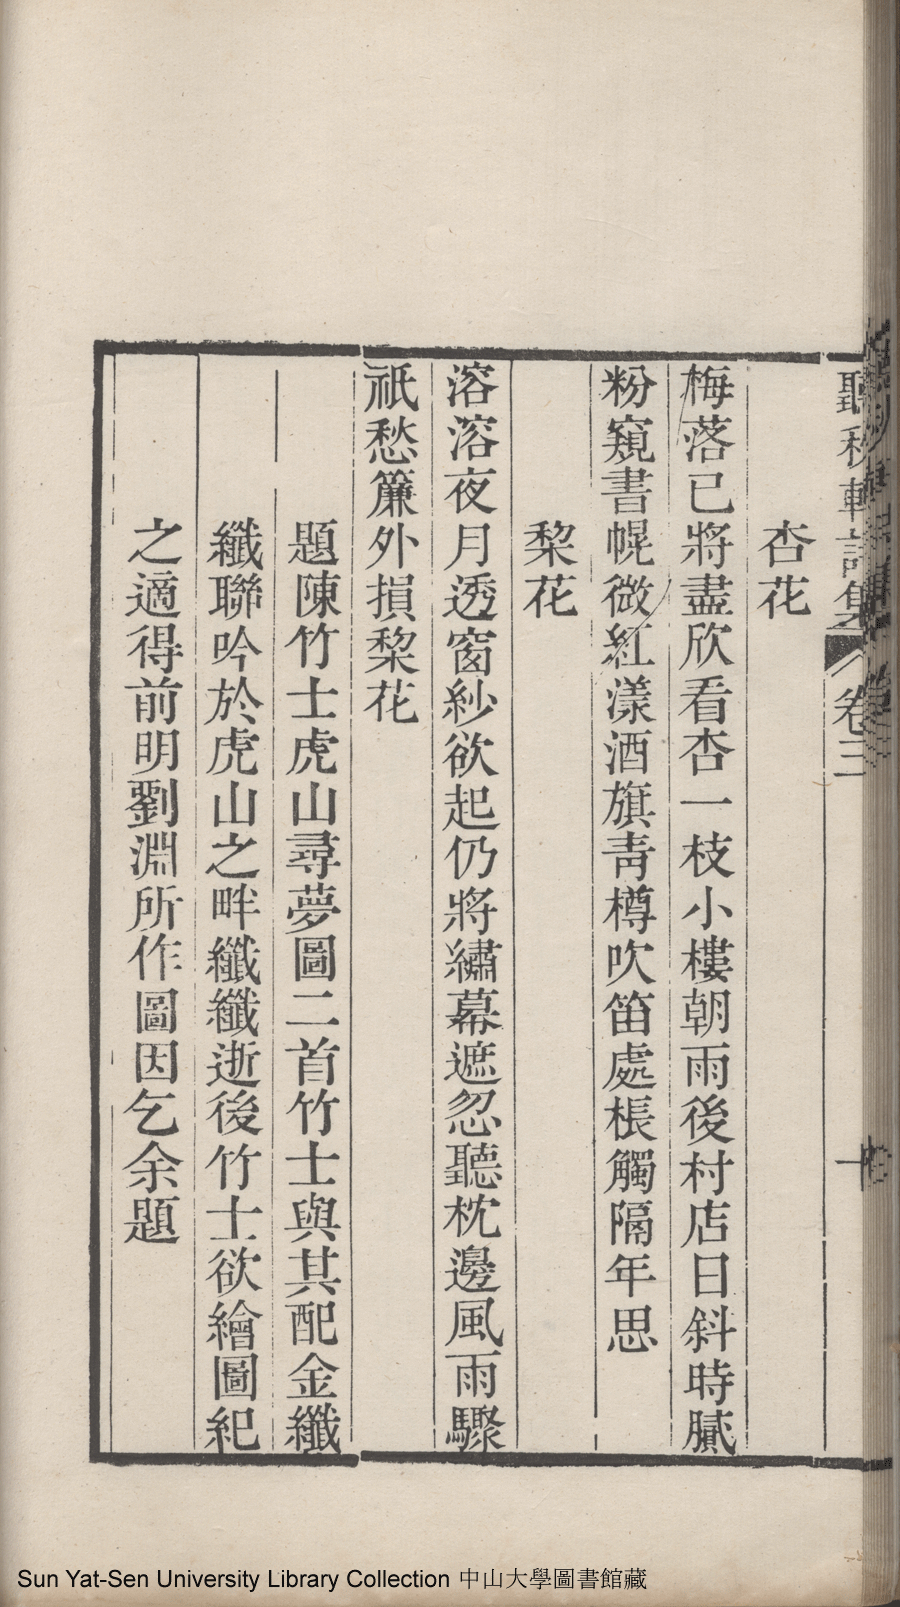 聽秋軒詩集 卷三
杏花
梅落已將盡欣看杏一枝小樓朝雨後村店日斜時膩
粉窺書幌微紅漾酒旗靑樽吹笛處棖觸隔年思
棃花
溶溶夜月透窗紗欲起仍將繡幕遮忽聽枕邊風雨驟
祇愁簾外損棃花
題陳竹士虎山尋夢圖二首竹士與其配金纖
纖聯吟於虎山之畔纖纖逝後竹士欲繪圖紀
之適得前明劉淵所作圖因乞余題
Sun Yat-Sen University Library Collection 中山大學圖書館藏